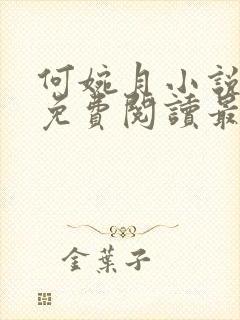 何婉月小說
免費閱讀最
金葉子